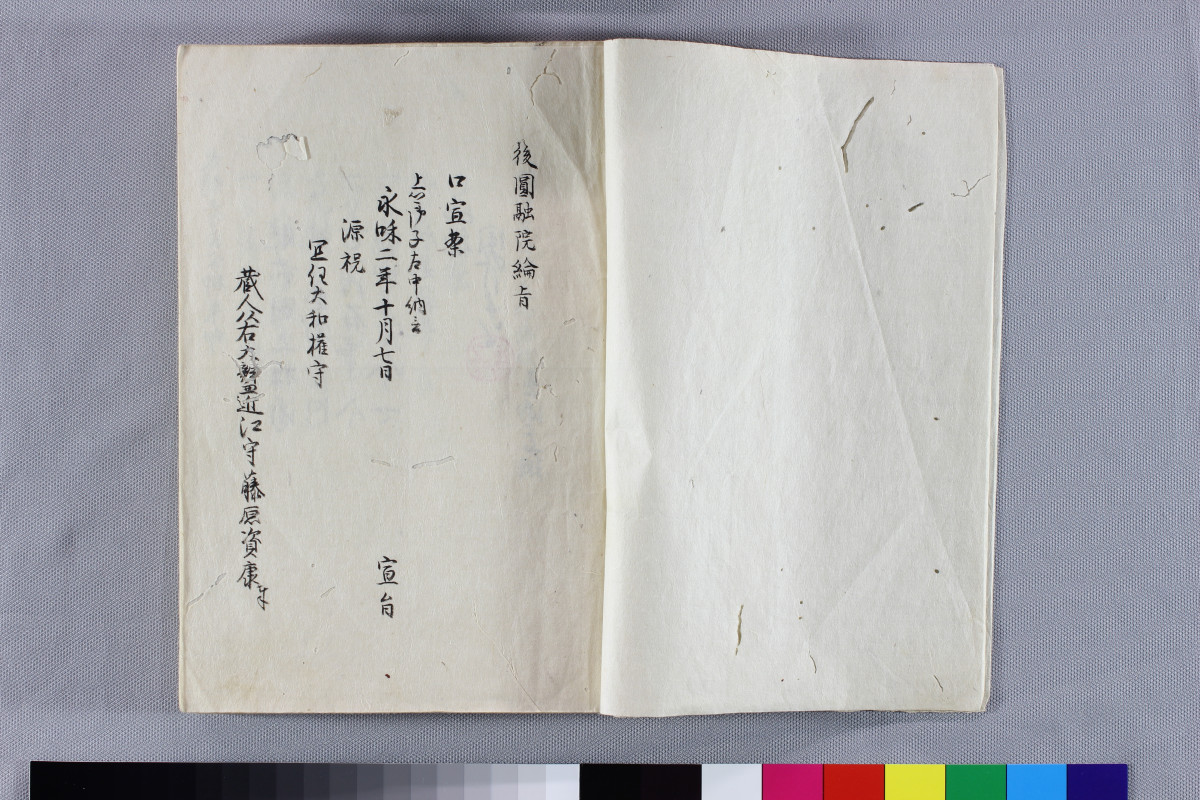 後圓融院綸旨
口宣案
上卿 子 中納言
永和二年十月七日 宣旨
源祝
宜任大和權守
蔵人 右 近江守藤原資康奉